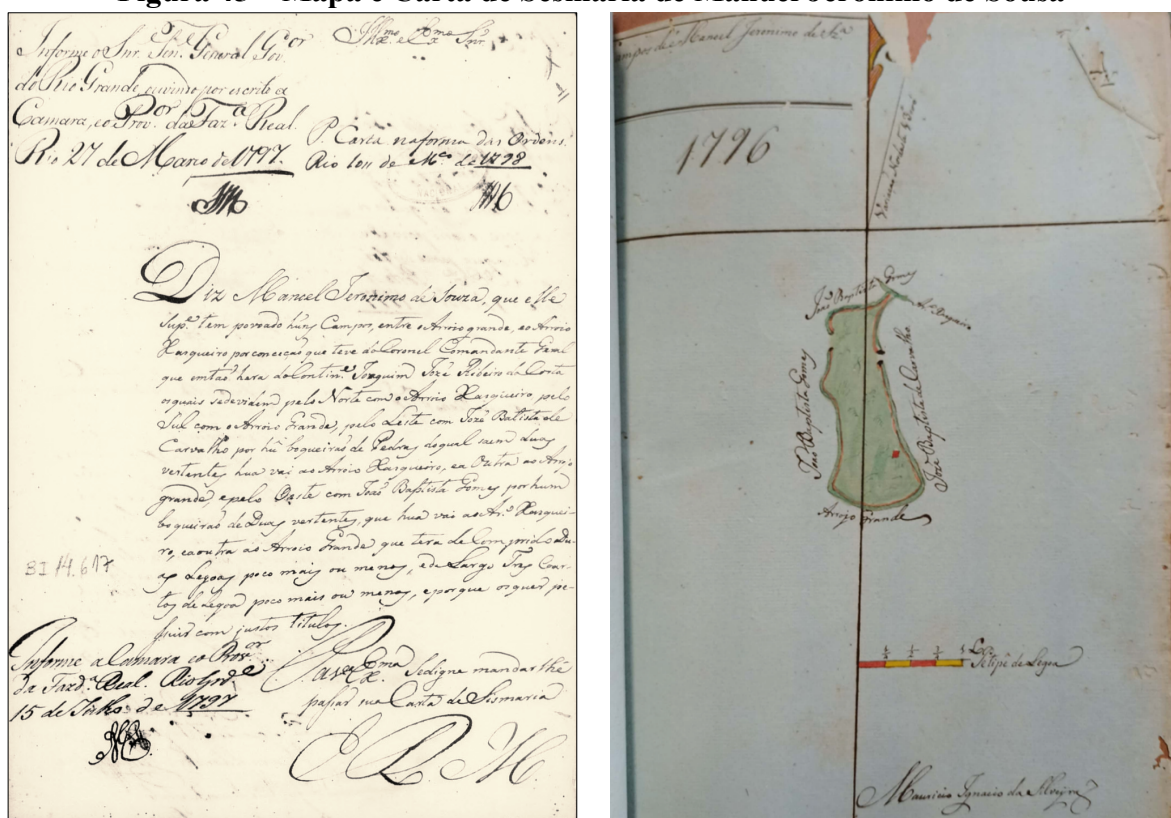 Figura 43 – Mapa e Carta de Sesmaria de Manuel Jerônimo de Sousa
Illmo e Exmo Snr
Informe o Snr. Ten.e General Gov.or
do Rio Grande ouvindo por escrito a
Camara, e o Prov.or da Faz.a Real.
Rio 27 de Março de 1797.
P. Carta na forma das Ordens.
Rio de M.ço de 1798
Diz Manoel Jeronimo de Souza, que elle
Sup.e tem povoado huns Campos, entre o Arroio grande, e o Arroio
Xarqueiro por conceição que teve do Coronel Comandante Geral
que então hera do Contin.e Joaquim Jozé Ribeiro da Costa
os quais sedevidem pelo Norte com o Arroio Xarqueiro, pelo
Sul com o Arroio Grande, pelo Leste com Jozé Battista de
Carvalho por hũ boqueirão de Pedras, do qual saem duas
vertentes, hua vai ao Arroio Xarqueiro, ea Outra ao Arroio
grande, e pelo Oeste com Joaõ Baptista Gomes por hum
boqueiraõ de Duas vertentes, que hua vai ao Ar.o Xarquei-
ro, ea outra ao Arroio Grande que tera de Comprido du-
as Legoas poco mais ou menos, e de Largo Tres Coar-
tos de Legoa poco mais ou menos, e porque os quer po-
suir com justos titulos.
BI 14.617
Informe a Camara e o Prov.or
da Fazd.a Real. Rio Gr.de
15 de Julho de 1797
P. a V. Ex.ma Sedigne mandar lhe
passar sua Carta de Sismaria
E R M
Campos de Manoel Jeronimo de Sz.a
1796
Joaõ Baptista Gomes
Ar.o Xarqueiro
Joaõ Baptista Gomes
Jozé Baptista de Carvalho
Arroio Grande
1/4 1/2 3/4 1 Leg.a
Petipé de Legoa
Mauricio Ignacio da Silveyra